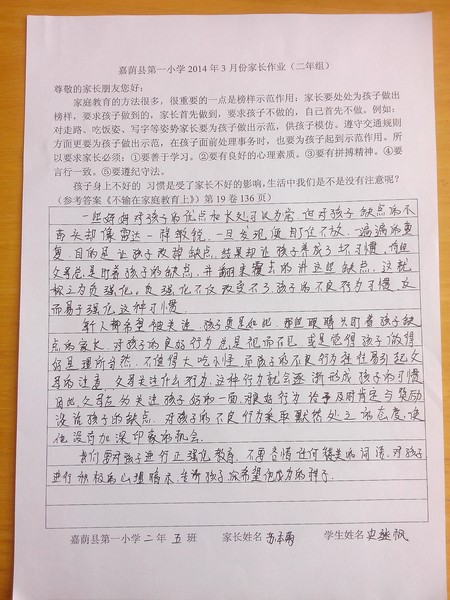 嘉荫县第一小学 2014 年 3 月份家长作业（二年组）
尊敬的家长朋友您好：
家庭教育的方法很多，很重要的一点是榜样示范作用；家长要处处为孩子做出
榜样，要求孩子做到的，家长首先做到，要求孩子不做的，自己首先不做。例如：
对走路、吃饭姿、写字等姿势家长要为孩子做出示范，供孩子模仿。遵守交通规则
方面更要为孩子做出示范，在孩子面前处理事务时，也要为孩子起到示范作用。所
以要求家长必须：①要善于学习。②要有良好的心理素质。③要有拼搏精神。④要
言行一致。⑤要遵纪守法。
孩子身上不好的 习惯是受了家长不好的影响，生活中我们是不是没有注意呢？
（参考答案《不输在家庭教育上》）第 19 卷 136 页）
一些妈妈对孩子的优点和长处可以忽略，但对孩子缺点的
却像雷达一样敏锐，一旦发现便盯住不放，一遍遍的重
复，目的是让孩子改掉缺点，结果却让孩子养成了坏习惯，
父母总是盯着孩子的缺点，并翻来覆去的讲这些缺点，这就
称之为负强化。负强化不仅改变不了孩子的不良行为习惯，反
而易于强化这种习惯。
新人都希望被关注，孩子更是如此。那些眼睛只盯着孩子缺
点的家长，对孩子的良好行为总是视而不见，或是觉得孩子做得
好是理所当然，不值得大惊小怪，而孩子的不良行为往往易引起父
母的注意，父母关注什么行为，这种行为就会逐渐形成孩子的习惯
因此，父母应多关注孩子好的一面，对良好行为给予及时肯定与奖励
淡论孩子的缺点，对孩子的不良行为采取默然处之的态度，使
他没有加深印象的机会。
我们要对孩子进行正强化教育，不要吝惜任何赞美的词语，对孩子
进行积极的心理暗示，告诉孩子你希望他成为的样子。
嘉荫县第一小学 二 年 五 班 家长姓名 学生姓名 史